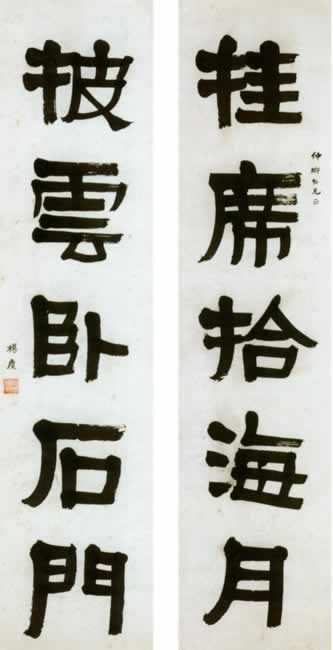 仲仁兄正
挂席拾海月
披雲卧石門
楊度